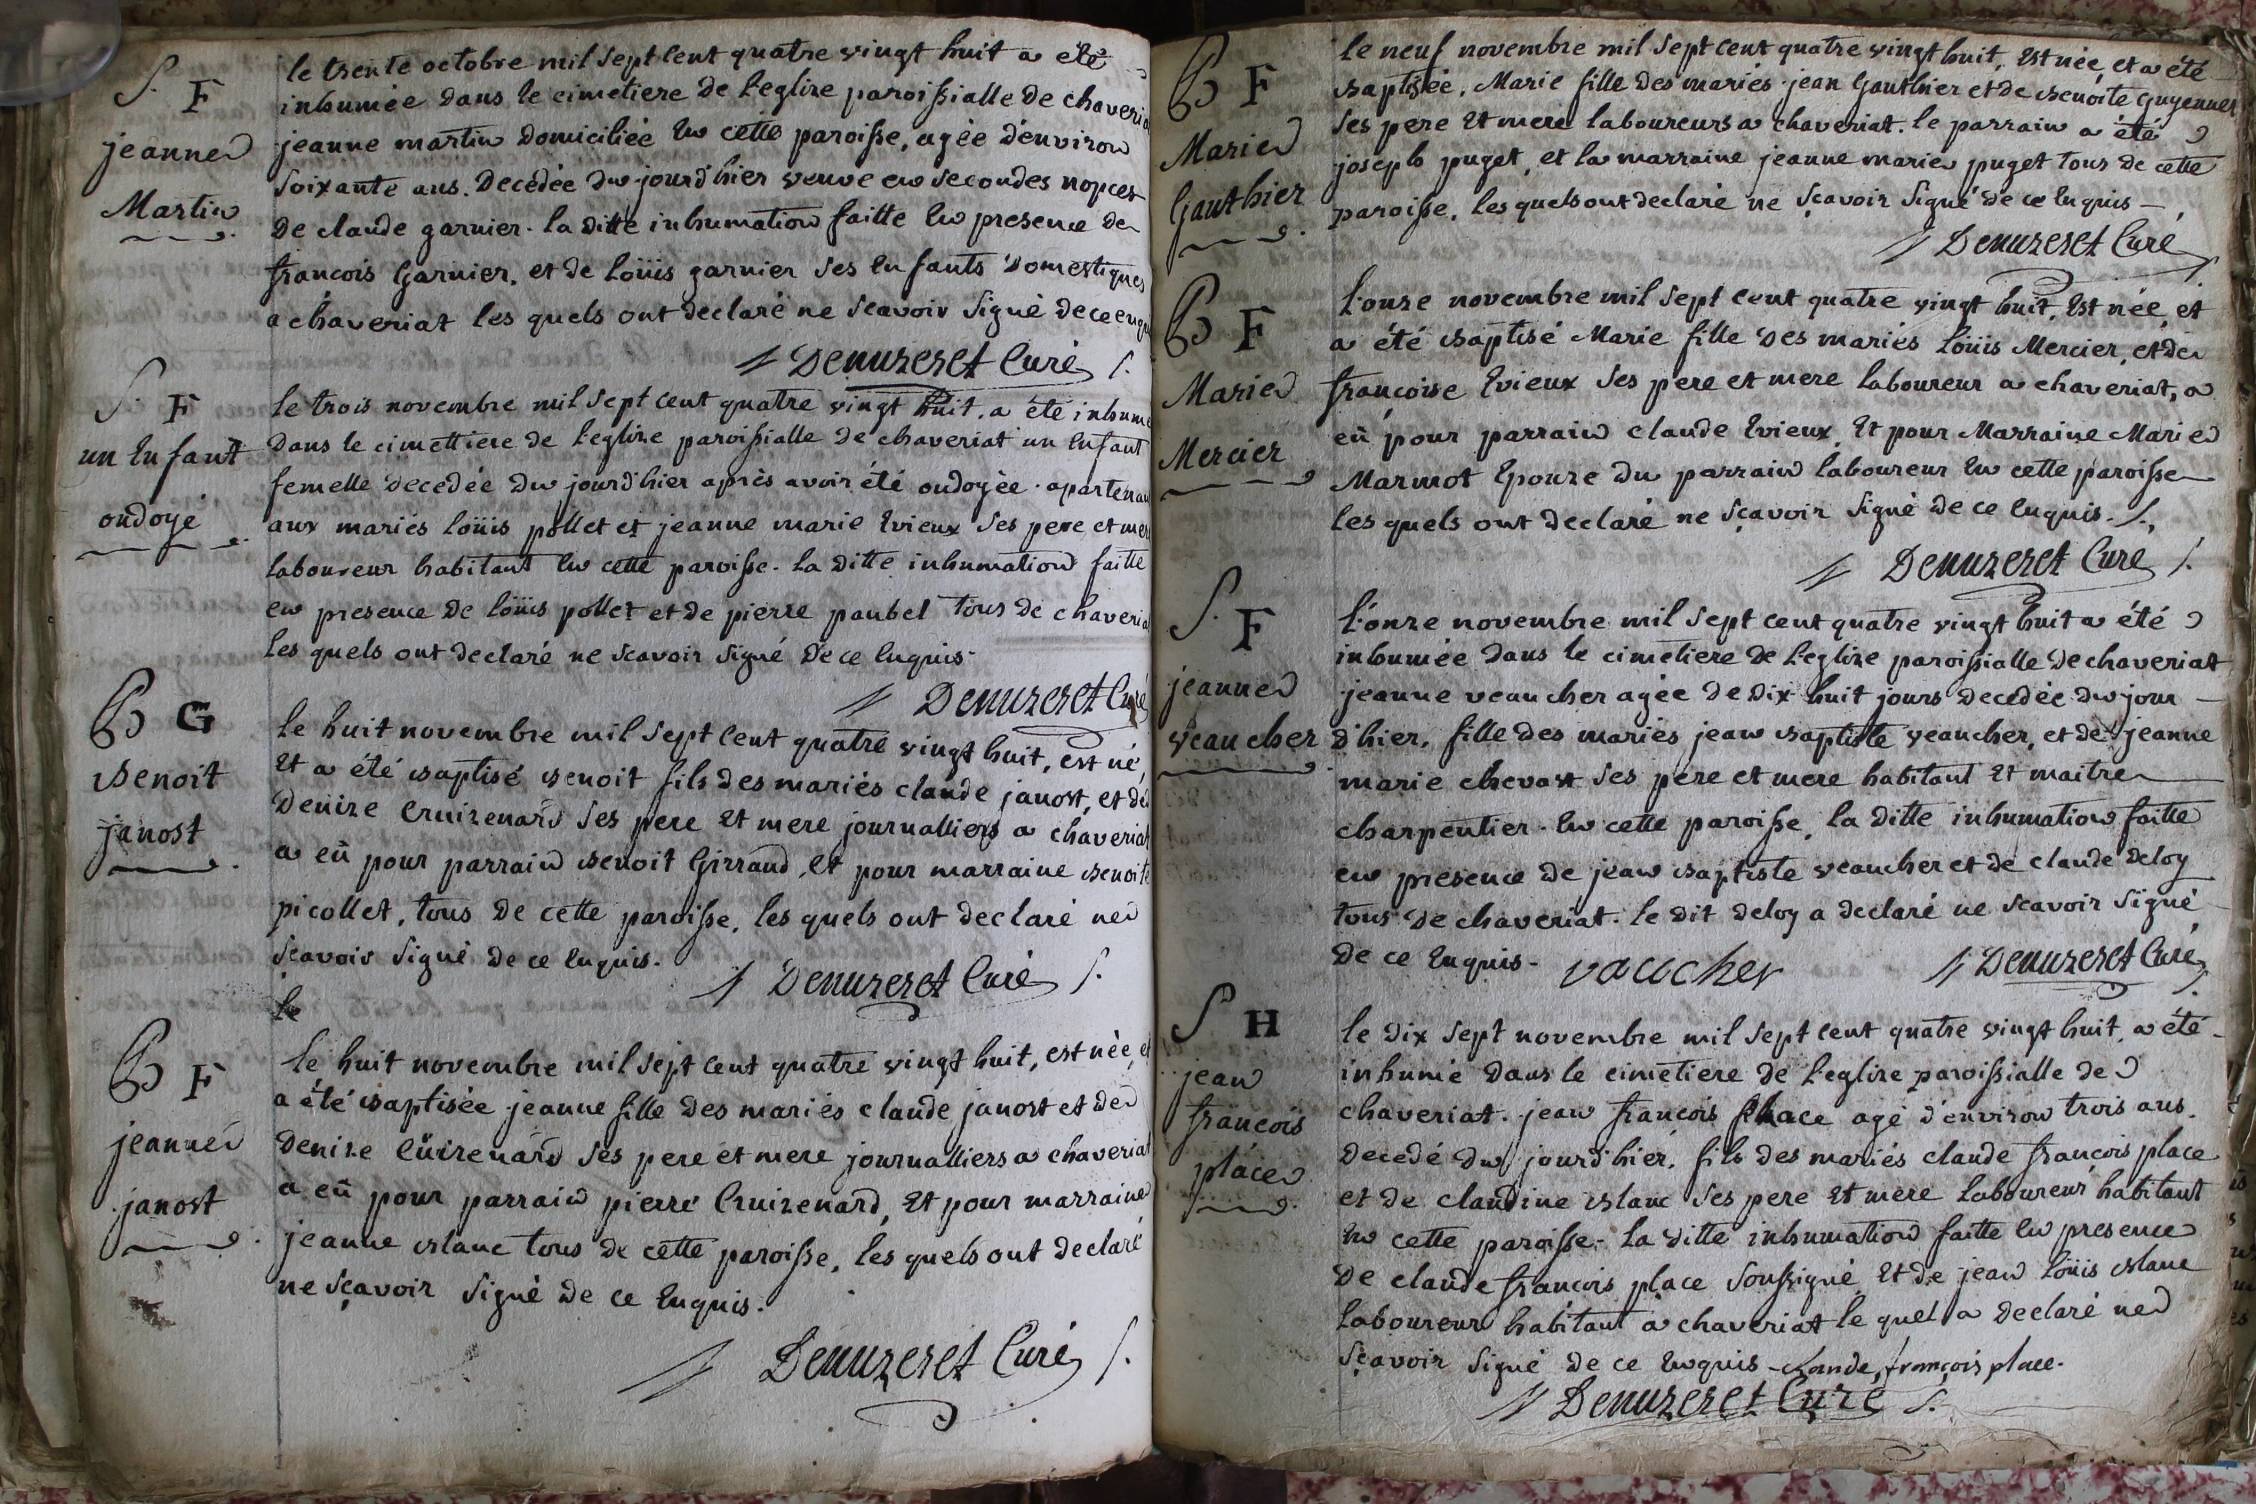 S. F
jeanne
Martin
le trente octobre mil sept cent quatre vingt huit a été
inhumée dans le cimetiere de l'eglize paroissialle de chaveria
jeanne martin domiciliée en cette paroisse, agée d'environ
soixante ans. decédée du jourd'hier veuve en secondes nopces
de claude garnier. la ditte inhumation faitte en presence de
francois Garnier, et de loüis garnier ses enfants domestiques
a chaveriat les quels ont declaré ne scavoir signé de ce enqu
Denuzeret Curé
S. F
un enfant
ondoyé
le trois novembre mil sept cent quatre vingt huit. a été inhumé
dans le cimettiere de l'eglize paroissialle de chaveriat un enfant
femelle decedée du jourd'hier après avoir été ondoyée. apartenan
aux mariés loüis pollet et jeanne marie Evieux ses pere et mer
laboureur habitant en cette paroisse. la ditte inhumation faitte
en presence de loüis pollet et de pierre paubel tous de chaveria
les quels ont declaré ne scavoir signé de ce enquis.
Denuzeret Curé
B G
Benoit
janost
le huit novembre mil sept cent quatre vingt huit, est né,
et a été baptisé benoit fils des mariés claude janost, et de
denize Cruizenard ses pere et mere journalliers a chaveriat
a eü pour parrain benoit Girraud, et pour marraine benoite
picollet, tous de cette paroisse, les quels ont declaré ne
sçavoir signé de ce enquis.
Denuzeret Curé
le
B F
jeanne
janost
le huit novembre mil sept cent quatre vingt huit, est née, et
a été baptisée jeanne fille des mariés claude janost et de
denize Cüizenard ses pere et mere journalliers a chaveriat
a eü pour parrain pierre Cruizenard, et pour marraine
jeanne blanc tous de cette paroisse, les quels ont declaré
ne sçavoir signé de ce enquis.
Denuzeret Curé
B F
Marie
Gauthier
le neuf novembre mil sept cent quatre vingt huit, est née et a été
baptisée, Marie fille des mariés jean Gauthier et de benoite Guyennet
ses pere et mere laboureurs a chaveriat. le parrain a été
joseph puget, et la marraine jeanne marie puget tous de cette
paroisse, les quels ont declaré ne sçavoir signé de ce enquis
Denuzeret Curé
B F
Marie
Mercier
l'onze novembre mil sept cent quatre vingt huit, est née, et
a été baptisé Marie fille des mariés loüis Mercier, et de
françoise Evieux ses pere et mere laboureur a chaveriat, a
eü pour parrain claude Evieux, et pour Marraine Marie
Marmot Epouze du parrain laboureur en cette paroisse
les quels ont declaré ne sçavoir signé de ce enquis.
Denuzeret Curé
S. F
jeanne
veaucher
l'onze novembre mil sept cent quatre vingt huit a été
inhumée dans le cimetiere de l'eglize paroissialle de chaveriat
jeanne veaucher agée de dix huit jours decedée du jour
d'hier, fille des mariés jean baptiste veaucher, et de jeanne
marie chevast ses pere et mere habitant et maitre
charpentier en cette paroisse, la ditte inhumation faitte
en presence de jean baptiste veaucher et de claude deloy
tous de chaveriat. le dit deloy a declaré ne scavoir signé
de ce enquis. vaucher Denuzeret Curé
S H
jean
francois
place
le dix sept novembre mil sept cent quatre vingt huit, a été
inhumé dans le cimetiere de l'eglize paroissialle de
chaveriat. jean francois place agé d'environ trois ans.
decedé du jourd'hier, fils des mariés claude françois place
et de claudine blanc ses pere et mere laboureur habitant
en cette paroisse. la ditte inhumation faitte en presence
de claude francois place soussigné et de jean loüis blanc
laboureur habitant a chaveriat le quel a declaré ne
sçavoir signé de ce enquis claude, françois place.
Denuzeret Curé